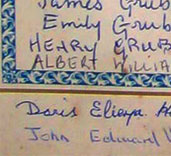 James Grub
Emily Grub
HENRY GRUB
ALBERT WILLIA
Doris
John Edward